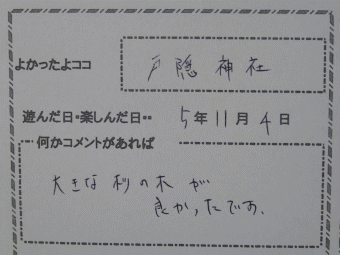 よかったよココ 戸隠神社
遊んだ日・楽しんだ日・・ 5年11月4日
何かコメントがあれば
大きな杉の木が
良かったです。